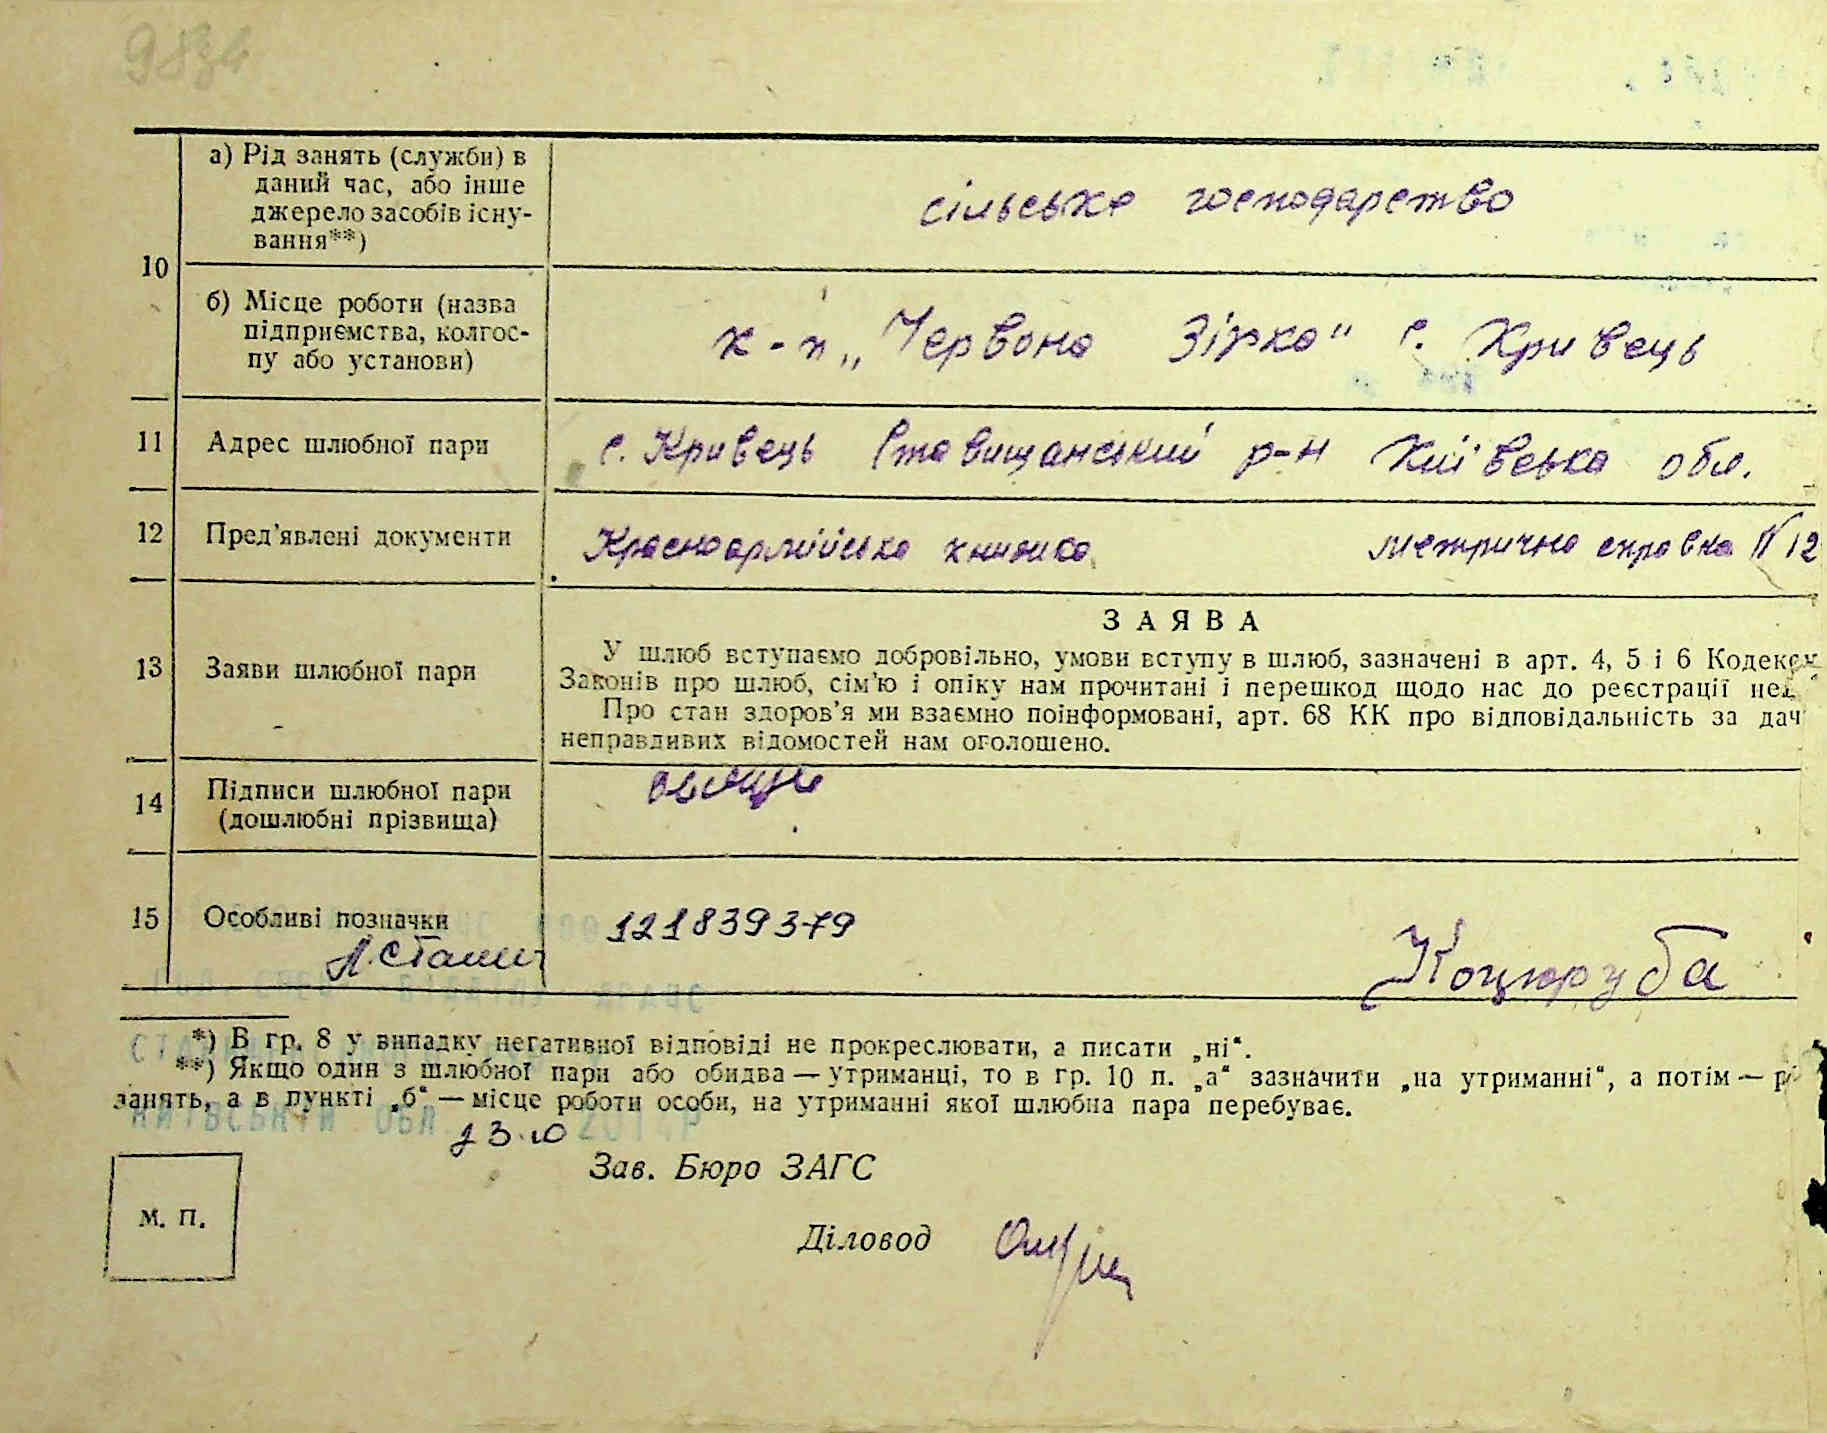 9834
10
а) Рід занять (служби) в
даний час, або інше
джерело засобів існу-
вання**)
сільське господарство
б) Місце роботи (назва
підприємства, колгос-
пу або установи)
к-п „Червона Зірка" с. Кривець
11 Адрес шлюбної пари
с. Кривець Ставищанський р-н Київська обл.
12 Пред'явлені документи
Красноармійська книжка метрична справка N 12
13 Заяви шлюбної пари
ЗАЯВА
У шлюб вступаємо добровільно, умови вступу в шлюб, зазначені в арт. 4, 5 і 6 Кодексу
Законів про шлюб, сім'ю і опіку нам прочитані і перешкод щодо нас до реєстрації нема
Про стан здоров'я ми взаємно поінформовані, арт. 68 КК про відповідальність за дач
неправдивих відомостей нам оголошено.
14 Підписи шлюбної пари
(дошлюбні прізвища)
15 Особливі позначки
121839379
Коцюруба
*) В гр. 8 у випадку негативної відповіді не прокреслювати, а писати „ні“.
**) Якщо один з шлюбної пари або обидва — утриманці, то в гр. 10 п. „а“ зазначити „на утриманні“, а потім — рі
занять, а в пункті „б“ — місце роботи особи, на утриманні якої шлюбна пара перебуває.
Зав. Бюро ЗАГС
М. П.
Діловод